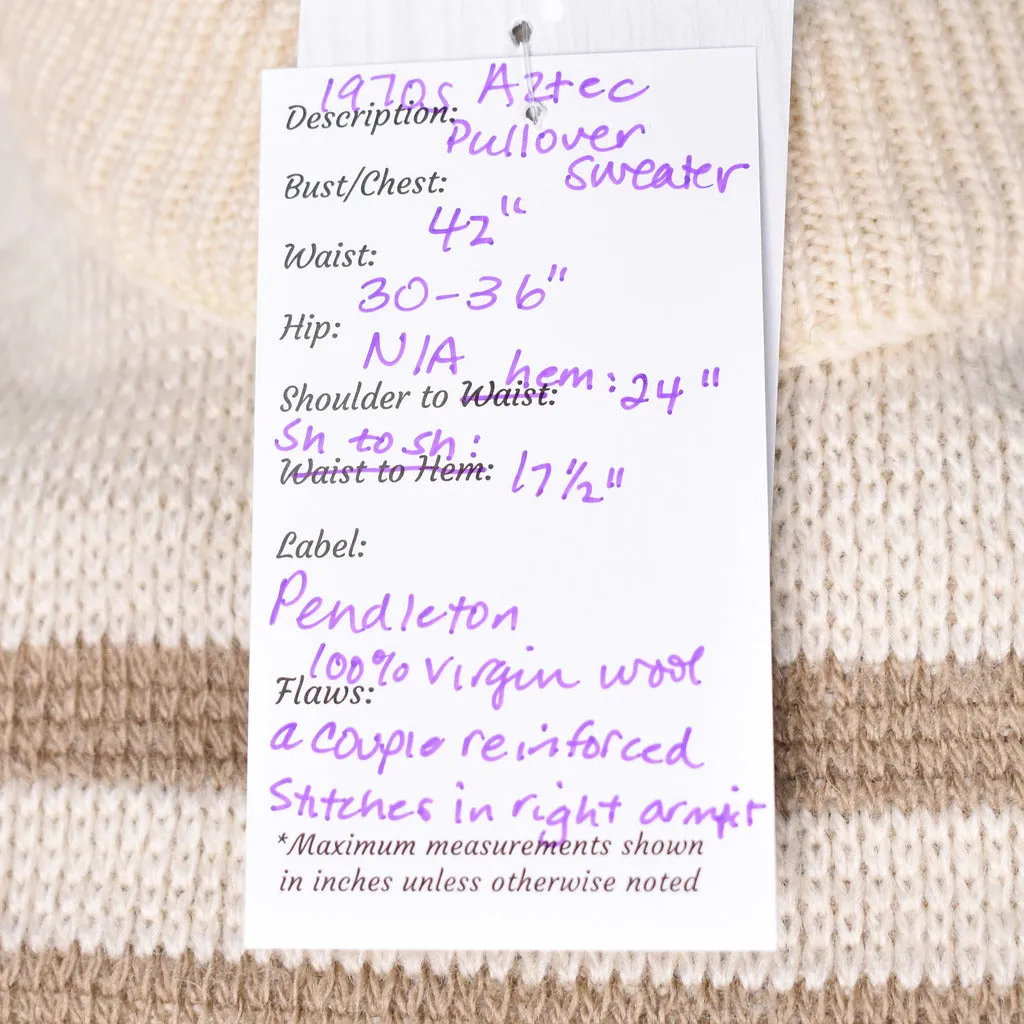 1970s Aztec
Description: Pullover
sweater
Bust/Chest:
42"
Waist:
30-36"
Hip:
N/A
Shoulder to Waist: hem: 24"
Sh to sh:
Waist to Hem: 17 1/2"
Label:
Pendleton
100% virgin wool
Flaws:
a couple reinforced
Stitches in right armpit
*Maximum measurements shown
in inches unless otherwise noted